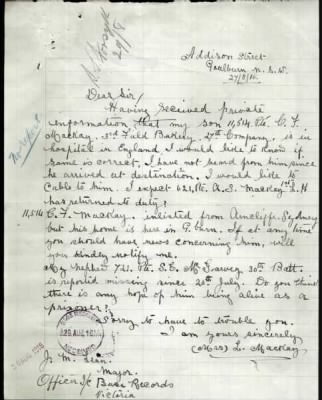 29/8
Addison Street
Goulburn N.S.W.
27/8/16.
Dear Sir/
Having received private
information that my son 11,514. Pte. C. F.
Mackay. 3rd Field Bakery. 27th Company. is in
hospital in England I would like to know if
same is correct, I have not heard from him, since
he arrived at destination. I would like to
Cable to him. I expect 621, Pte. A. S. Mackay 1st L. H
has returned to duty?
11,514 C. F. Mackay. inlisted from Arncliffe. Sydney
but his home is here in G. burn. If at any time
you should have news concerning him, will
you kindly notify me.
My Nephew Pte. S. E. 30th Batt.
is reported missing since 20th July. Do you think
there is any hope of him being alive as a
prisoner?
Sorry to have to trouble you.
I am yours sincerely
(Mrs) L. Mackay
29 AUG 1916
J. M. Lean.
Major.
Officer I/C Base Records
Victoria